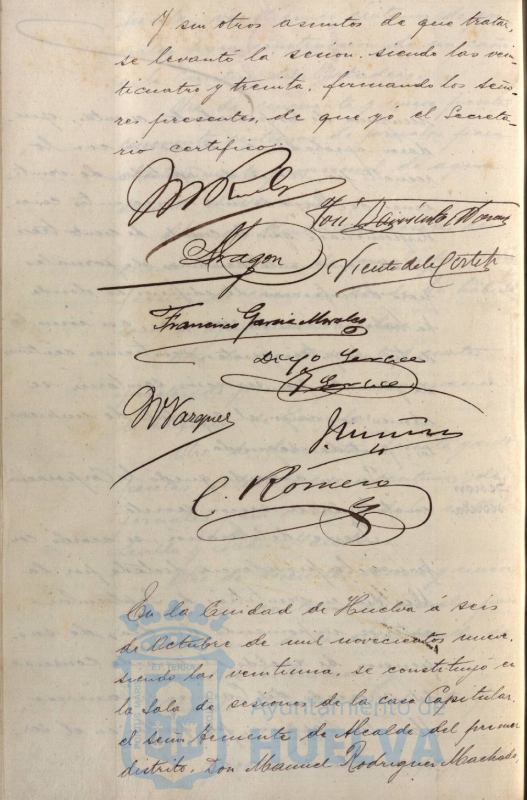 Y sin otros asuntos de que tratar,
se levantó la sesion siendo las vein-
ticuatro y treinta, firmando los seño-
res presentes, de que yó el Secreta-
rio certifico.
José
Aragon
Vicente de la Corte
Francisco Garcia Morales
Diego
M Vazquez
C. Romero
En la Ciudad de Huelva á seis
de Octubre de mil novecientos nueve
siendo las veintiuna, se constituyó en
la Sala de sesiones de la casa Capitular,
el señor teniente de Alcalde del primer
distrito, Don Manuel Rodriguez Machado,
Ayuntamiento de
HUELVA